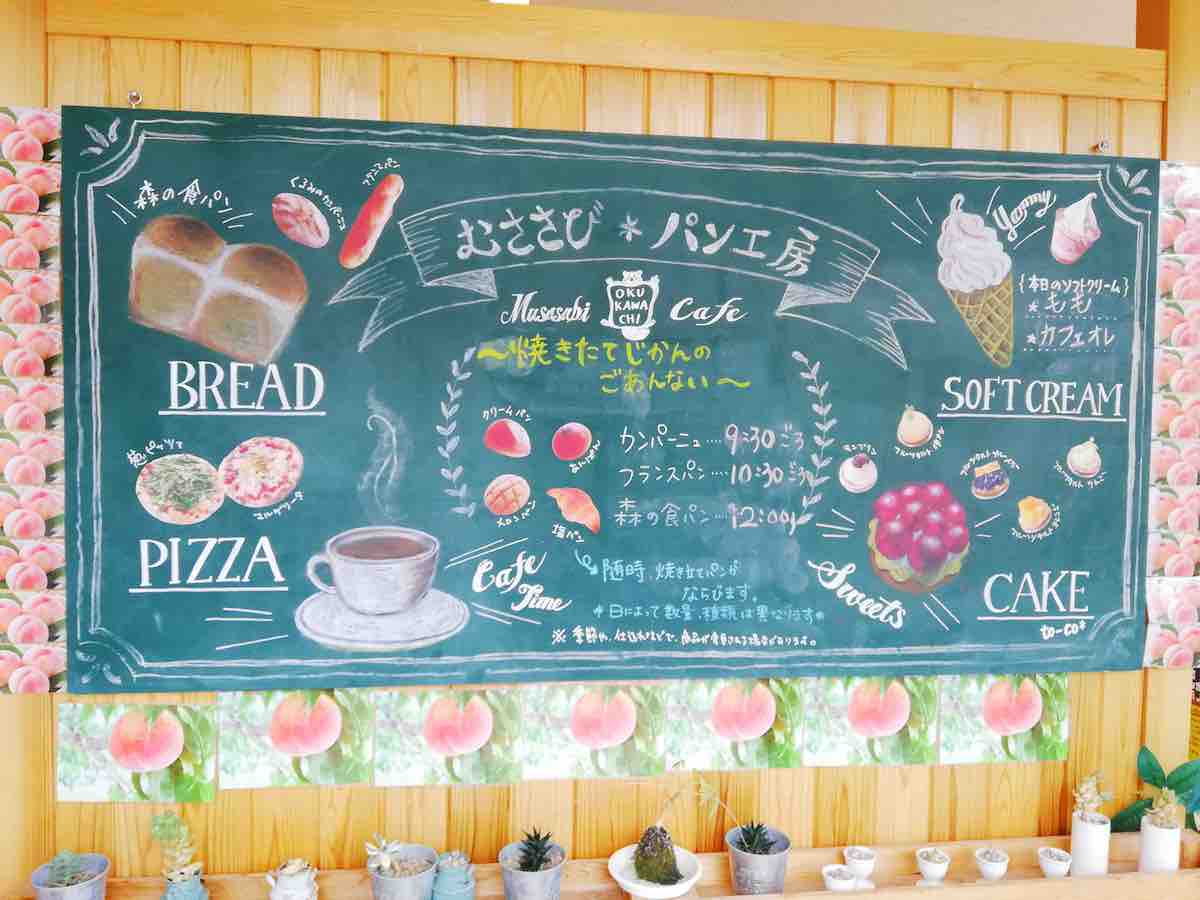 むささび * パン工房
Musasabi
OKU
KAWA
CHI
Cafe
～焼きたてじかんの
ごあんない～
森の食パン
フランスパン
BREAD
PIZZA
クリームパン
あんぱん
メロンパン
塩パン
カンパーニュ‥‥9:30ごろ
フランスパン‥‥10:30ごろ
森の食パン‥‥12:00
随時、焼き立てパンが
ならびます。
*日によって数量、種類は異なります*
※季節や、仕込みなどで、商品が変更される場合があります。
Cafe
Time
Yummy
{本日のソフトクリーム}
*もも
*カフェオレ
SOFT CREAM
モンブラン
Sweets
CAKE
to-co*